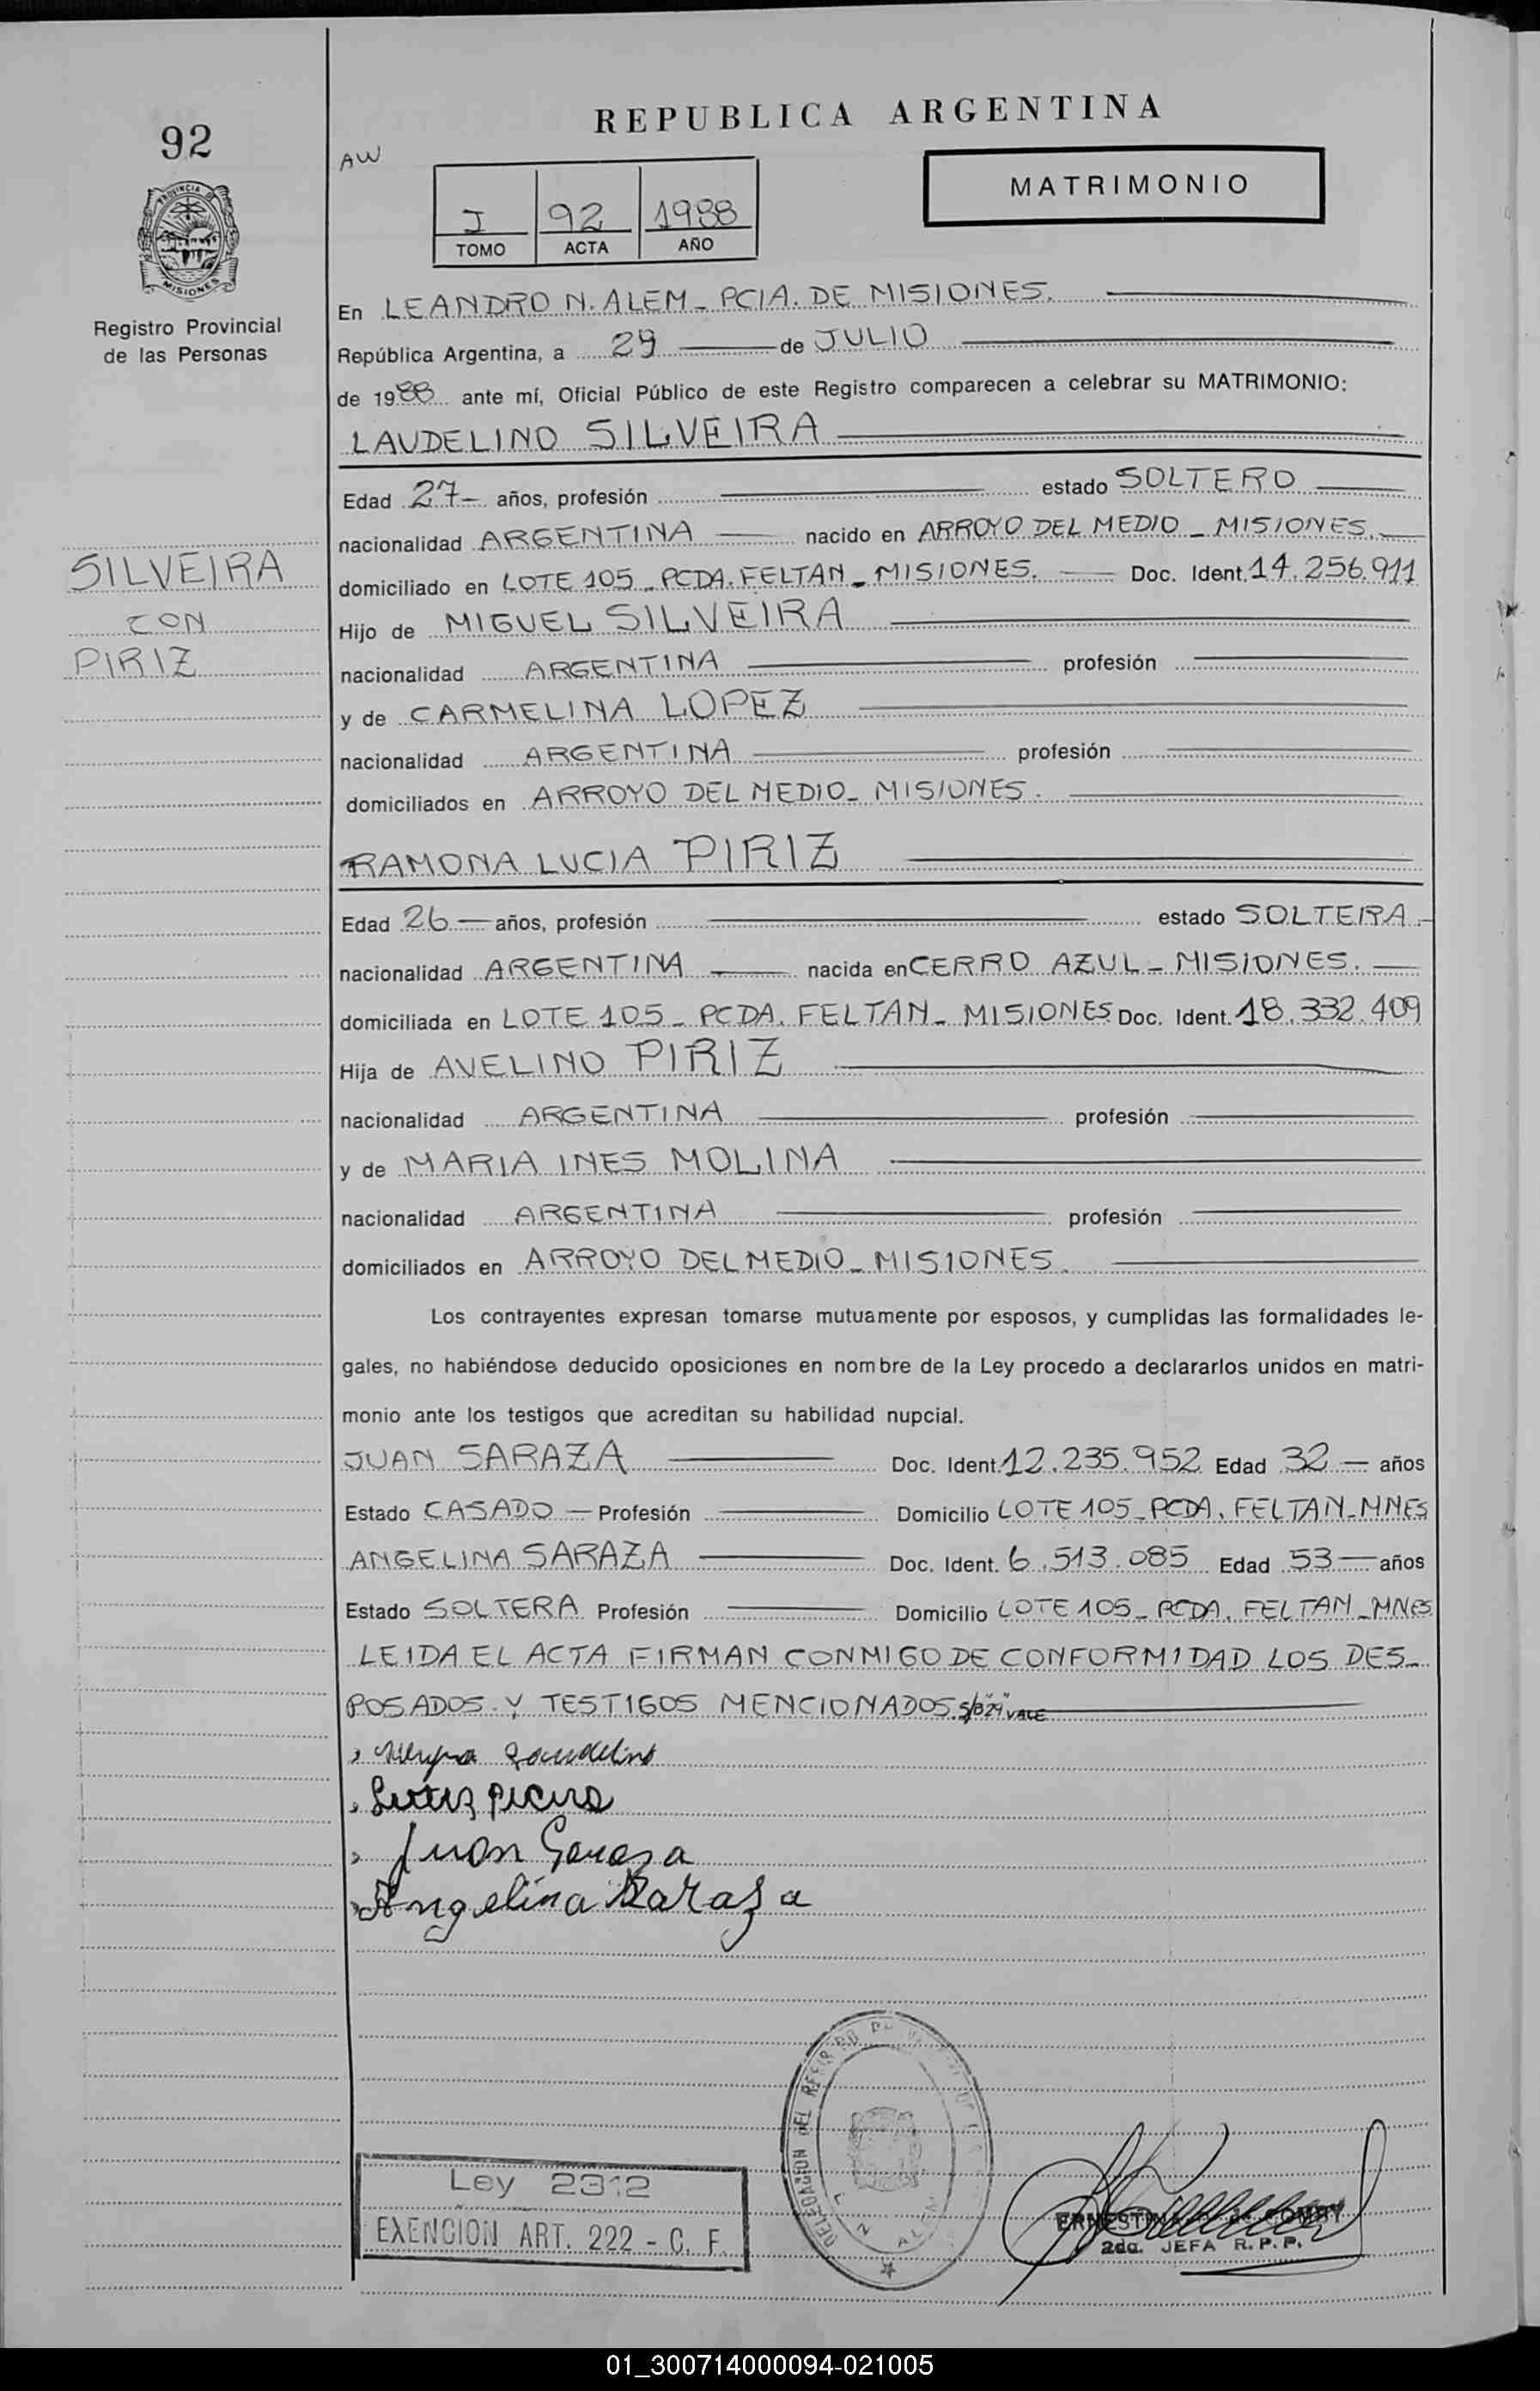 REPUBLICA ARGENTINA
92
AW
MATRIMONIO
I 92 1988
TOMO ACTA AÑO
PROVINCIA DE
MISIONES
Registro Provincial
de las Personas
En LEANDRO N. ALEM - PCIA. DE MISIONES.
República Argentina, a 29 de JULIO
de 1988 ante mí, Oficial Público de este Registro comparecen a celebrar su MATRIMONIO:
LAUDELINO SILVEIRA
Edad 27 años, profesión estado SOLTERO
nacionalidad ARGENTINA nacido en ARROYO DEL MEDIO - MISIONES.
SILVEIRA
CON
PIRIZ
domiciliado en LOTE 105 - PCDA. FELTAN - MISIONES. Doc. Ident. 14.256.911
Hijo de MIGUEL SILVEIRA
nacionalidad ARGENTINA profesión
y de CARMELINA LOPEZ
nacionalidad ARGENTINA profesión
domiciliados en ARROYO DEL MEDIO - MISIONES.
RAMONA LUCIA PIRIZ
Edad 26 años, profesión estado SOLTERA.
nacionalidad ARGENTINA nacida en CERRO AZUL - MISIONES.
domiciliada en LOTE 105 - PCDA. FELTAN - MISIONES Doc. Ident. 18.332.409
Hija de AVELINO PIRIZ
nacionalidad ARGENTINA profesión
y de MARIA INES MOLINA
nacionalidad ARGENTINA profesión
domiciliados en ARROYO DEL MEDIO - MISIONES.
Los contrayentes expresan tomarse mutuamente por esposos, y cumplidas las formalidades le-
gales, no habiéndose deducido oposiciones en nombre de la Ley procedo a declararlos unidos en matri-
monio ante los testigos que acreditan su habilidad nupcial.
JUAN SARAZA Doc. Ident. 12.235.952 Edad 32 años
Estado CASADO Profesión Domicilio LOTE 105 - PCDA. FELTAN - MNES
ANGELINA SARAZA Doc. Ident. 6.513.085 Edad 53 años
Estado SOLTERA Profesión Domicilio LOTE 105 - PCDA. FELTAN - MNES
LEIDA EL ACTA FIRMAN CONMIGO DE CONFORMIDAD LOS DES-
POSADOS Y TESTIGOS MENCIONADOS. S/B "29" VALE
Juan
Angelina Saraza
DELEGACION DEL REGISTRO
Ley 2312
EXENCION ART. 222 - C. F.
2da. JEFA R. P. P.
01_300714000094-021005